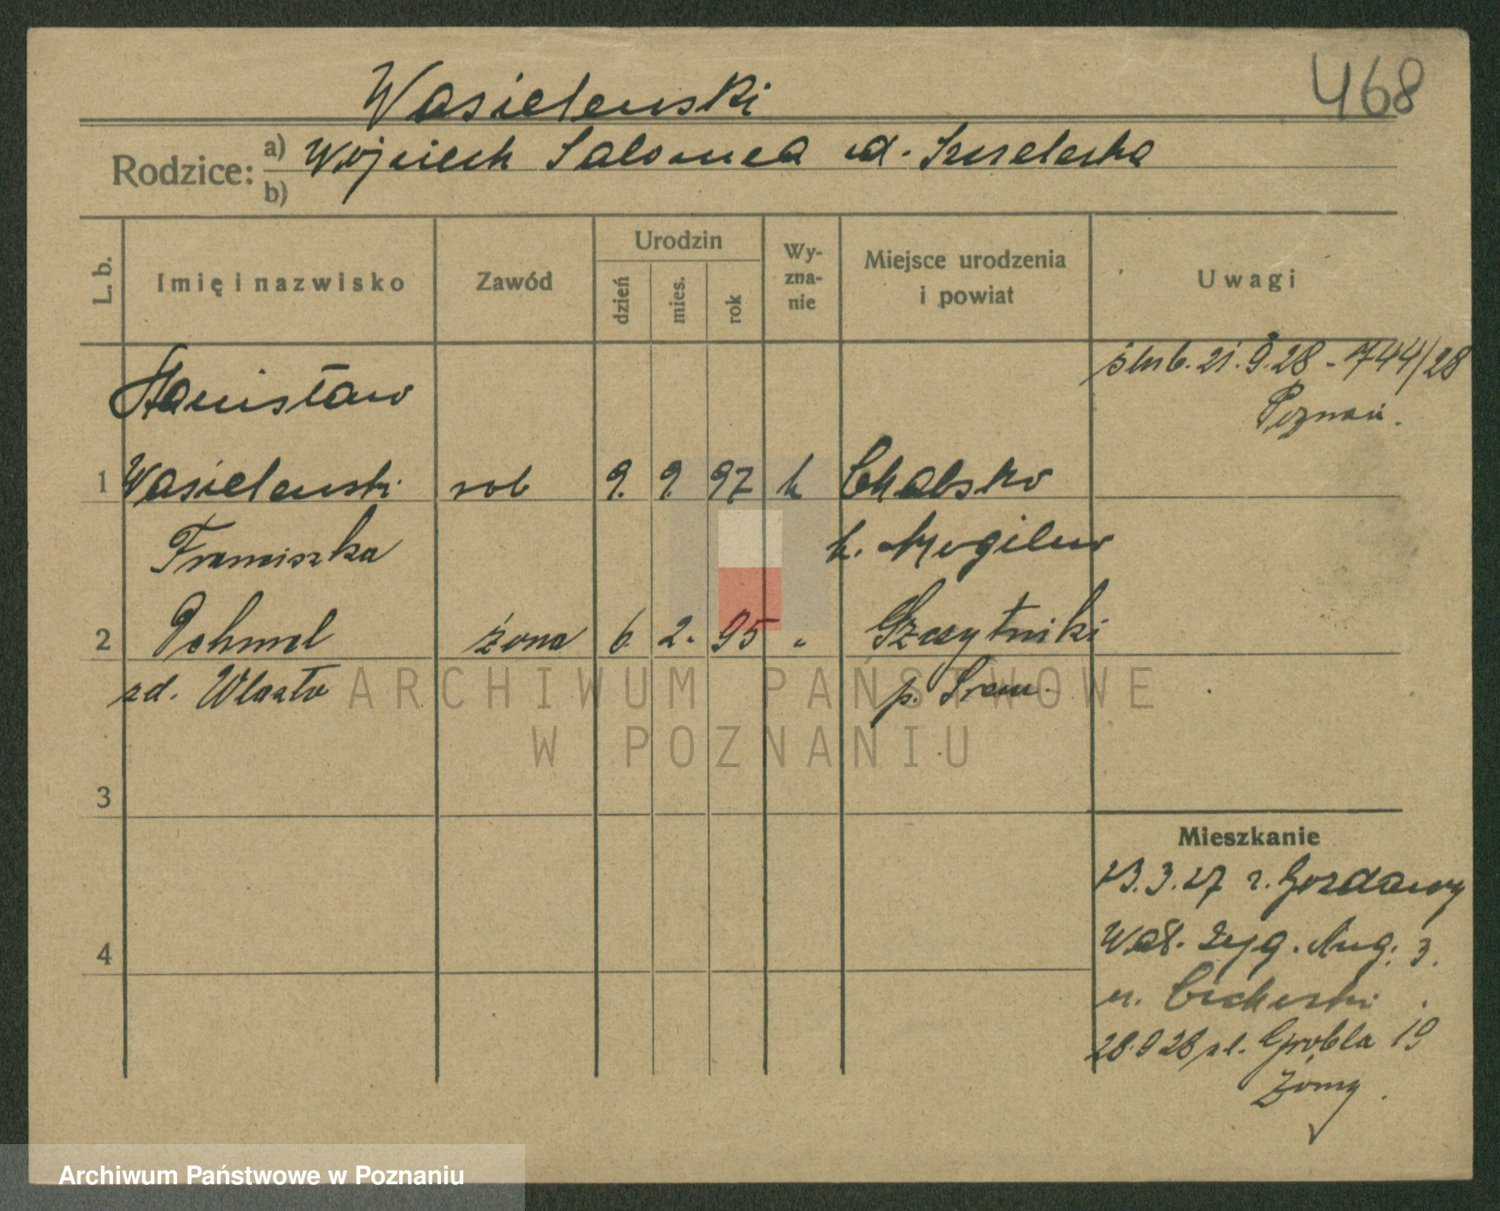 468
Wasielewski
Rodzice: a) Wojciech Salomea
b)
L. b.
Imię i nazwisko
Zawód
Urodzin
dzień
mies.
rok
Wy-
zna-
nie
Miejsce urodzenia
i powiat
Uwagi
Stanisław
ślub. 21.9.28 - 744/28
Poznań.
1 Wasielewski rob 9. 9. 97 k Chabsko
Franciszka k. Mogilno
2 Pchmel żona 6 2. 95 " Szczytniki
p. Śrem.
3
4
Mieszkanie
23.3.27 z. Gozdawy
Wał. Zyg. Aug. 3.
u. Cicherski
28.9.28 Grobla 19
żony
ARCHIWUM PAŃSTWOWE
W POZNANIU
Archiwum Państwowe w Poznaniu